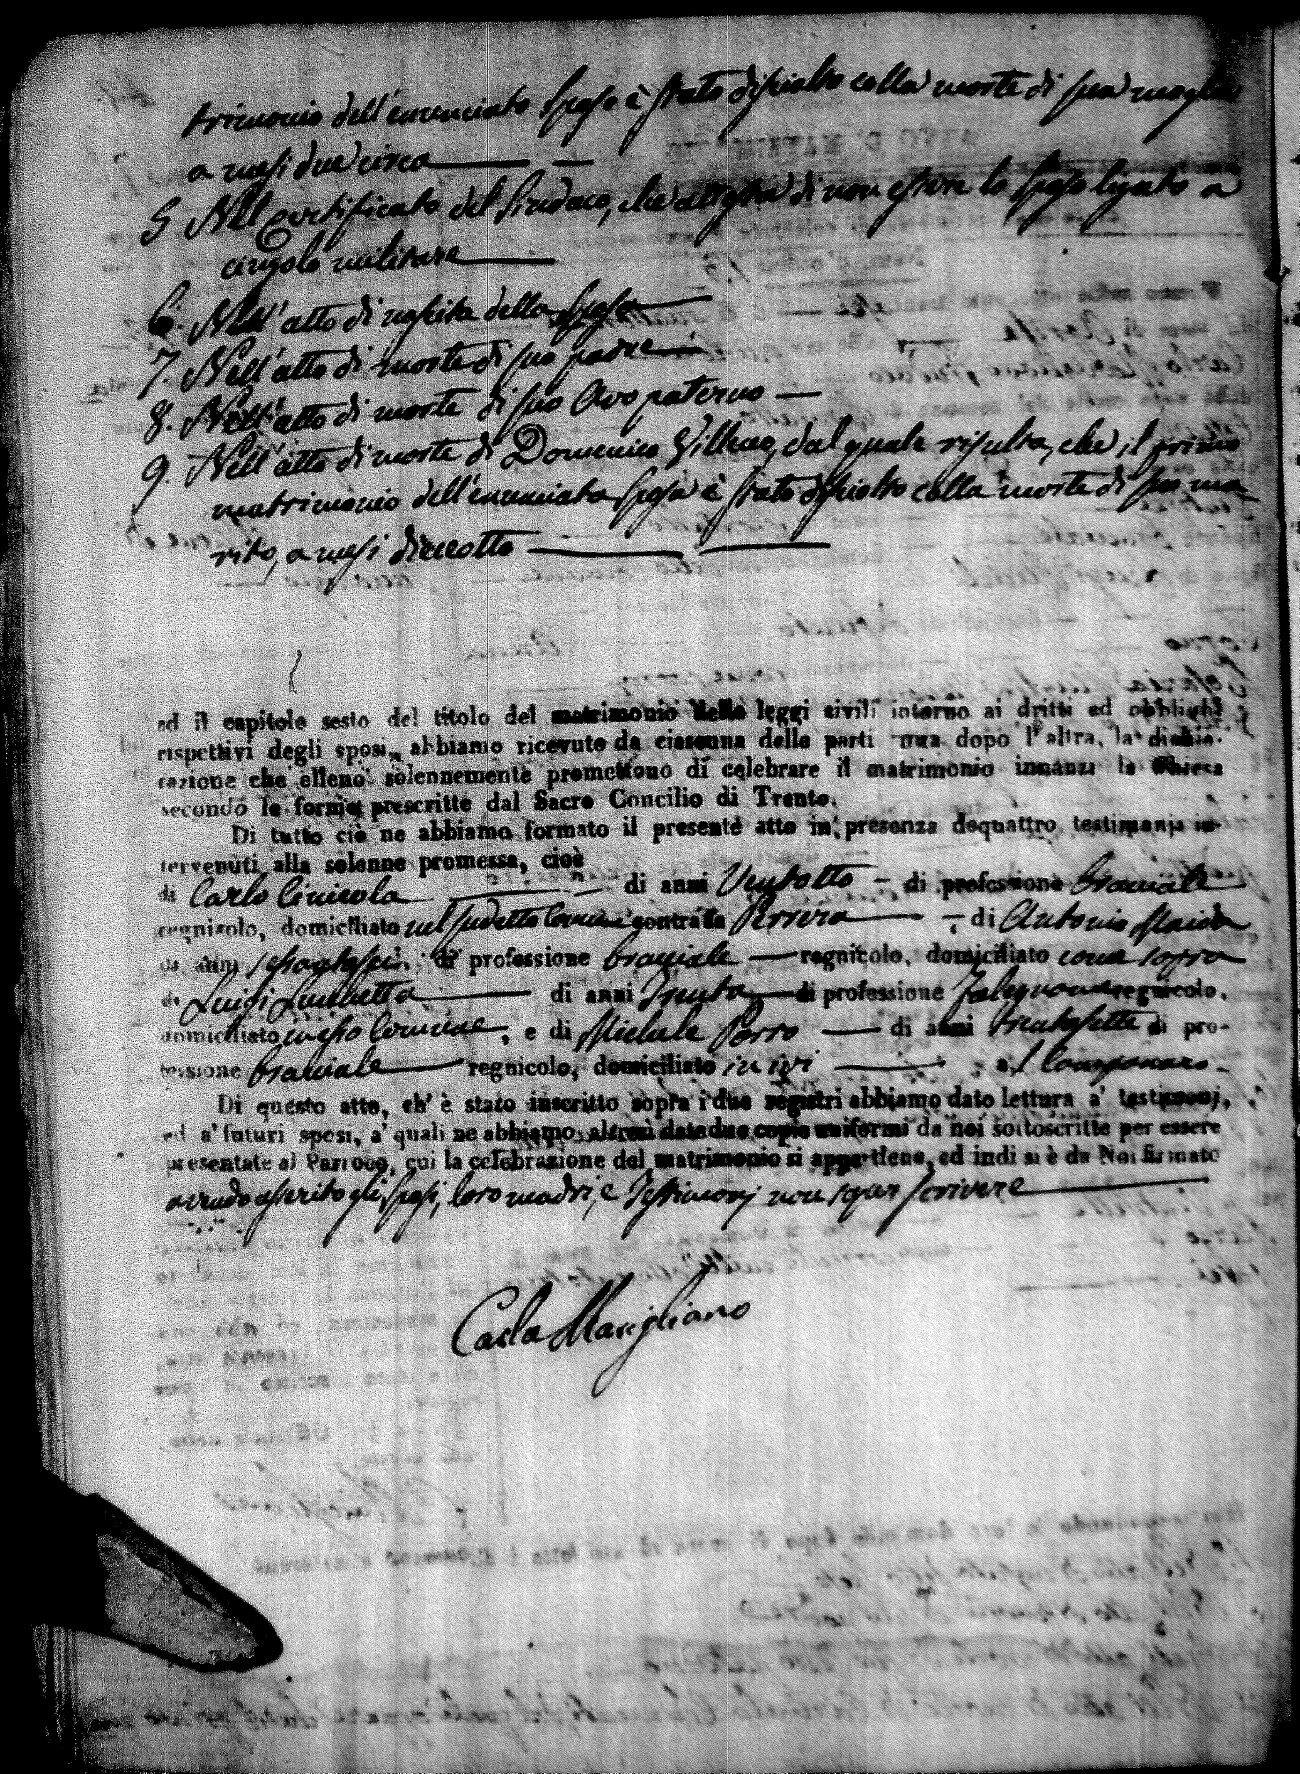 trimonio dell'enunciato sposo è stato disciolto colla morte di sua moglie
a mesi due circa
5 Nel Certificato del Sindaco, che attesta di non essere lo sposo ligato a
cingolo militare
6. Nell'atto di nascita della sposa
7. Nell'atto di morte di suo padre
8. Nell'atto di morte di suo Avo paterno
9. Nell'atto di morte di Domenico dal quale risulta, che il primo
matrimonio dell'enunciata sposa è stato disciolto colla morte di suo ma-
rito, a mesi dieciotto
ed il capitolo sesto del titolo del matrimonio delle leggi civili intorno ai dritti ed obblighi
rispettivi degli sposi, abbiamo ricevuto da ciascuna delle parti una dopo l'altra, la dichia-
razione che elleno solennemente promettono di celebrare il matrimonio innanzi la Chiesa
secondo le forme prescritte dal Sacro Concilio di Trento.
Di tutto ciò ne abbiamo formato il presente atto in presenza de quattro testimonj in-
tervenuti alla solenne promessa, cioè
di Carlo di anni Ventotto di professione bracciale
regnicolo, domiciliato nel sudetto Comune contrada , di Antonio
di anni di professione bracciale regnicolo, domiciliato come sopra
di Luigi di anni Trenta di professione Falegname regnicolo,
domiciliato in esso Comune, e di Michele Porro di anni trentasette di pro-
fessione bracciale regnicolo, domiciliato in ivi a
Di questo atto, ch'è stato inscritto sopra i due registri abbiamo dato lettura a' testimonj,
ed a' futuri sposi, a' quali ne abbiamo altresì date due copie uniformi da noi sottoscritte per essere
presentate al Parroco, cui la celebrazione del matrimonio si appartiene, ed indi si è da Noi firmato
avendo asserito gli sposi, loro madri, e Testimonj non saper scrivere
Carlo Marigliano